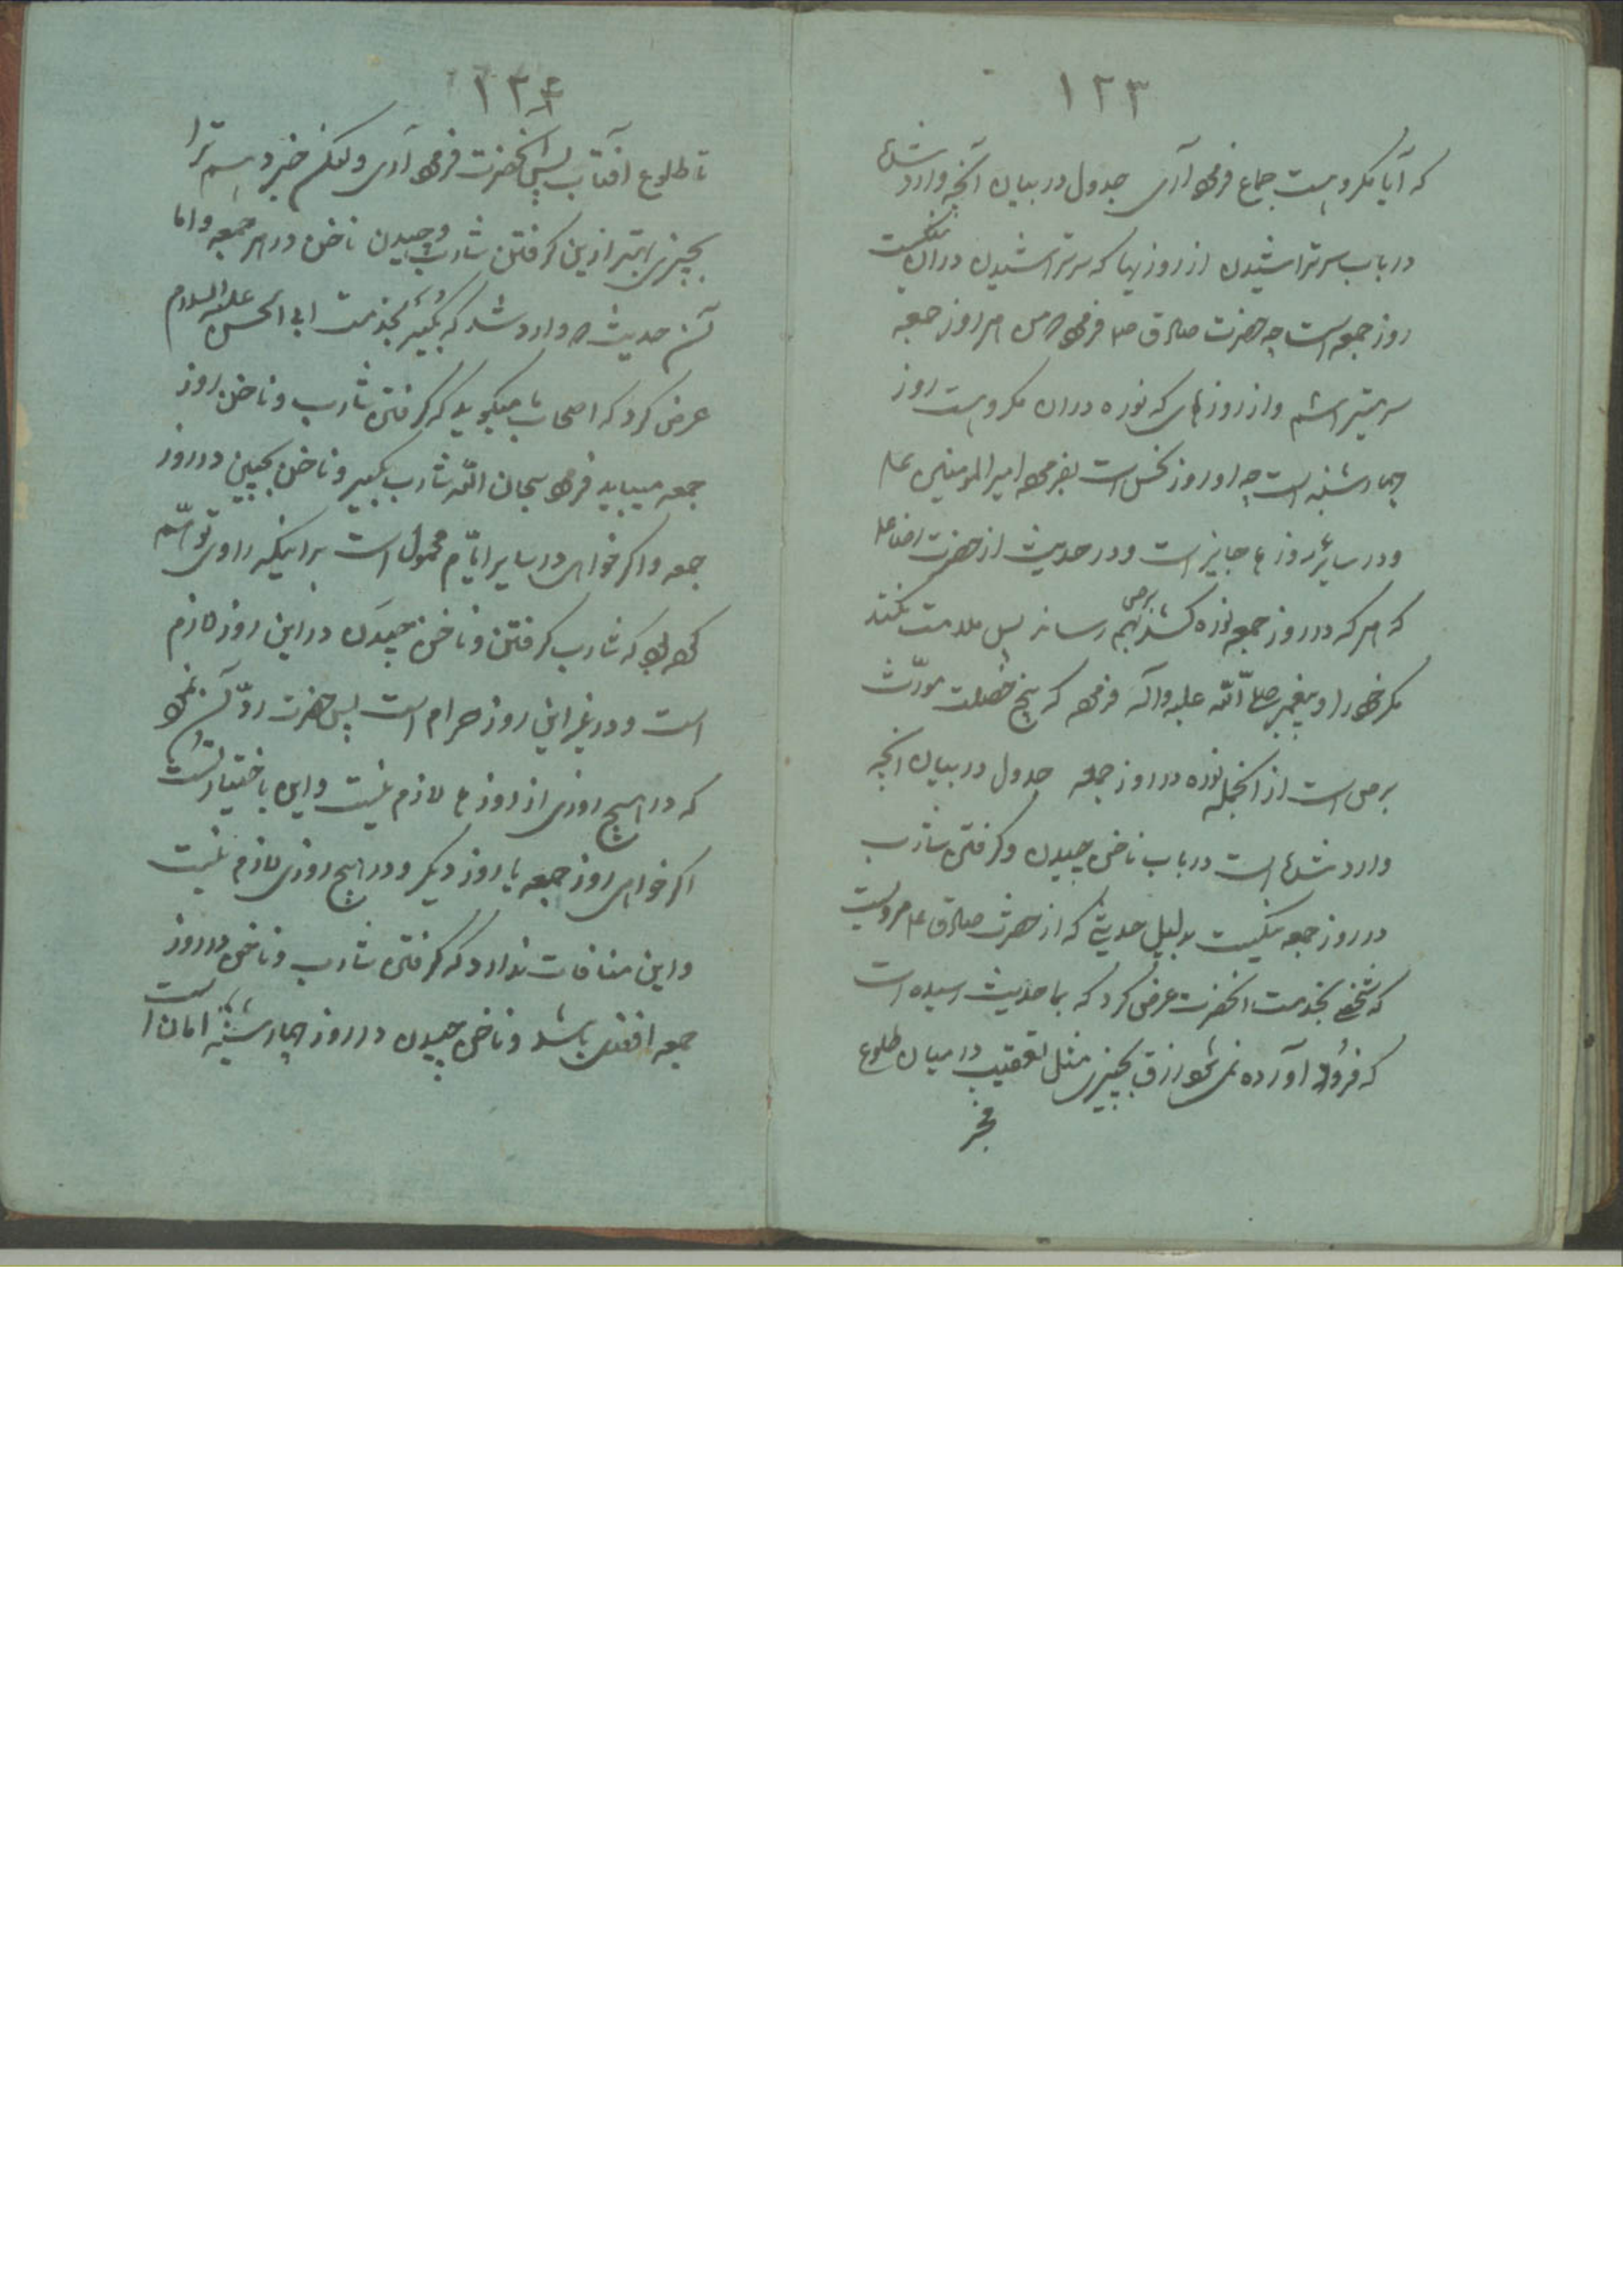 ١٢٣
که آیا مکروهست جماع فرمود آری جدول در بیان آنچه وارد شده
در باب سر تراشیدن از روزهیا که سر تراشیدن دران نیکست
روز جمعه است چه حضرت صادق ع فرمود من هر روز جمعه
سر میتراشم و از روزهای که نوره دران مکروهست روز
چهارشنبه است چه او روز نحس است بفرموده امیر المومنین ع
و در سایر روزها جایز است و در حدیث از حضرت رضا ع
که هر که در روز جمعه نوره کشد بهم رساند برص پس ملامت نکند
مکر خود را و پیغمبر صلی الله علیه و آله فرمود که پنج خصلت مورّث
برص است از انجمله نوره در روز جمعه جدول در بیان انچه
وارد شده است در باب ناخن چیدن و کرفتن شارب
در روز جمعه نیکست بدلیل حدیثی که از حضرت صادق ع مرویست
که شخصی بخدمت انحضرت عرض کرد که بما حدیث رسیده است
که فرود آورده نمیشود رزق بچیزی مثل تعقیب در میان طلوع
فجر
١٢۴
تا طلوع آفتاب پس آنحضرت فرمود آری ولکن خبر دهم ترا
بچیزی بهتر ازین کرفتن شارب و چیدن ناخن در هر جمعه و اما
آن حدیث وارد شد که بخدمت ابی الحسن علیه السلام
عرض کرد که اصحاب ما میکوید که کرفتن شارب و ناخن روز
جمعه میباید فرمود سبحان الله شارب بکیر و ناخن بچین در روز
جمعه و اکر خواهی در سایر ایّام محمول است براینکه راوی توهّم
کرده بود که شارب کرفتن و ناخن چیدن در این روز لازم
است و در غیر این روز حرام است پس حضرت ردّ آن نمود
که در هیچ روزی از روزها لازم نیست و این باختیار تست
اکر خواهی روز جمعه یا روز دیکر و در هیچ روزی لازم نیست
و این منافات ندارد که کرفتن شارب و ناخن در روز
جمعه افضل باشد و ناخن چیدن در روز چهارشنبه امان ا ست